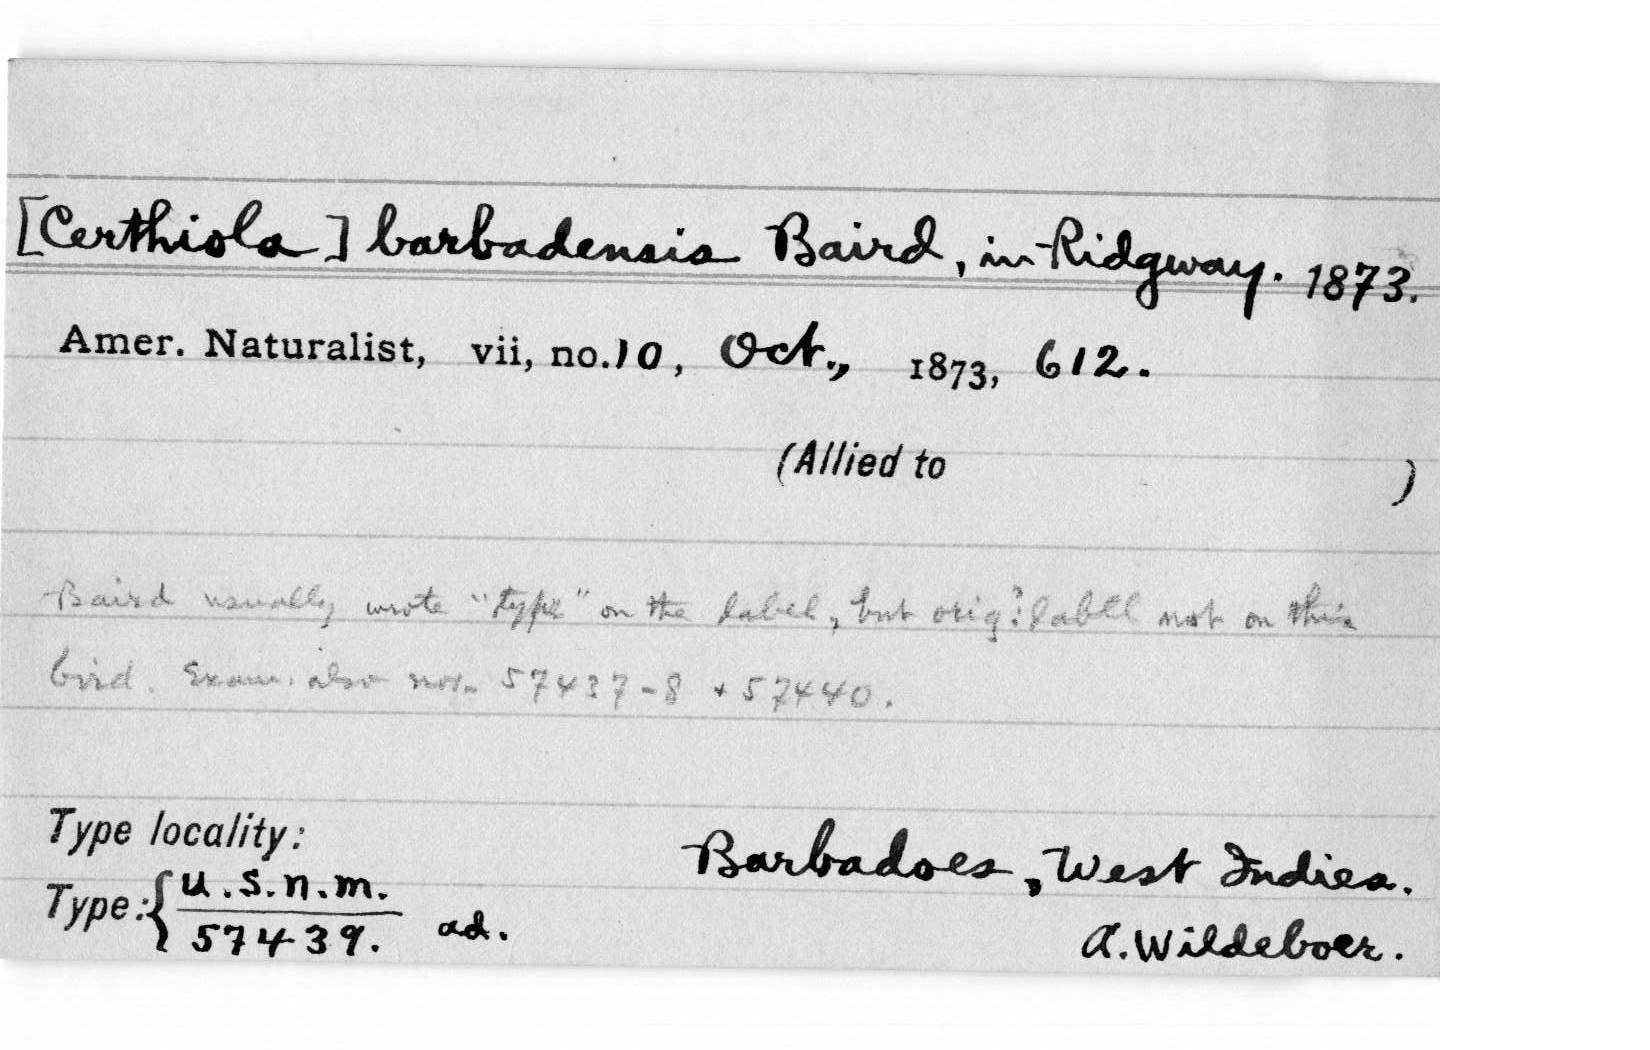 [Certhiola] barbadensis Baird, in Ridgway. 1873.
Amer. Naturalist, vii, no.10, Oct., 1873, 612.
(Allied to )
Baird usually wrote "type" on the label, but orig? label not on this
bird. Exam. also nos. 57437-8 + 57440.
Type locality:
Barbadoes, West Indies.
Type: { U.S.N.M. 57439. ad.
A. Wildeboer.